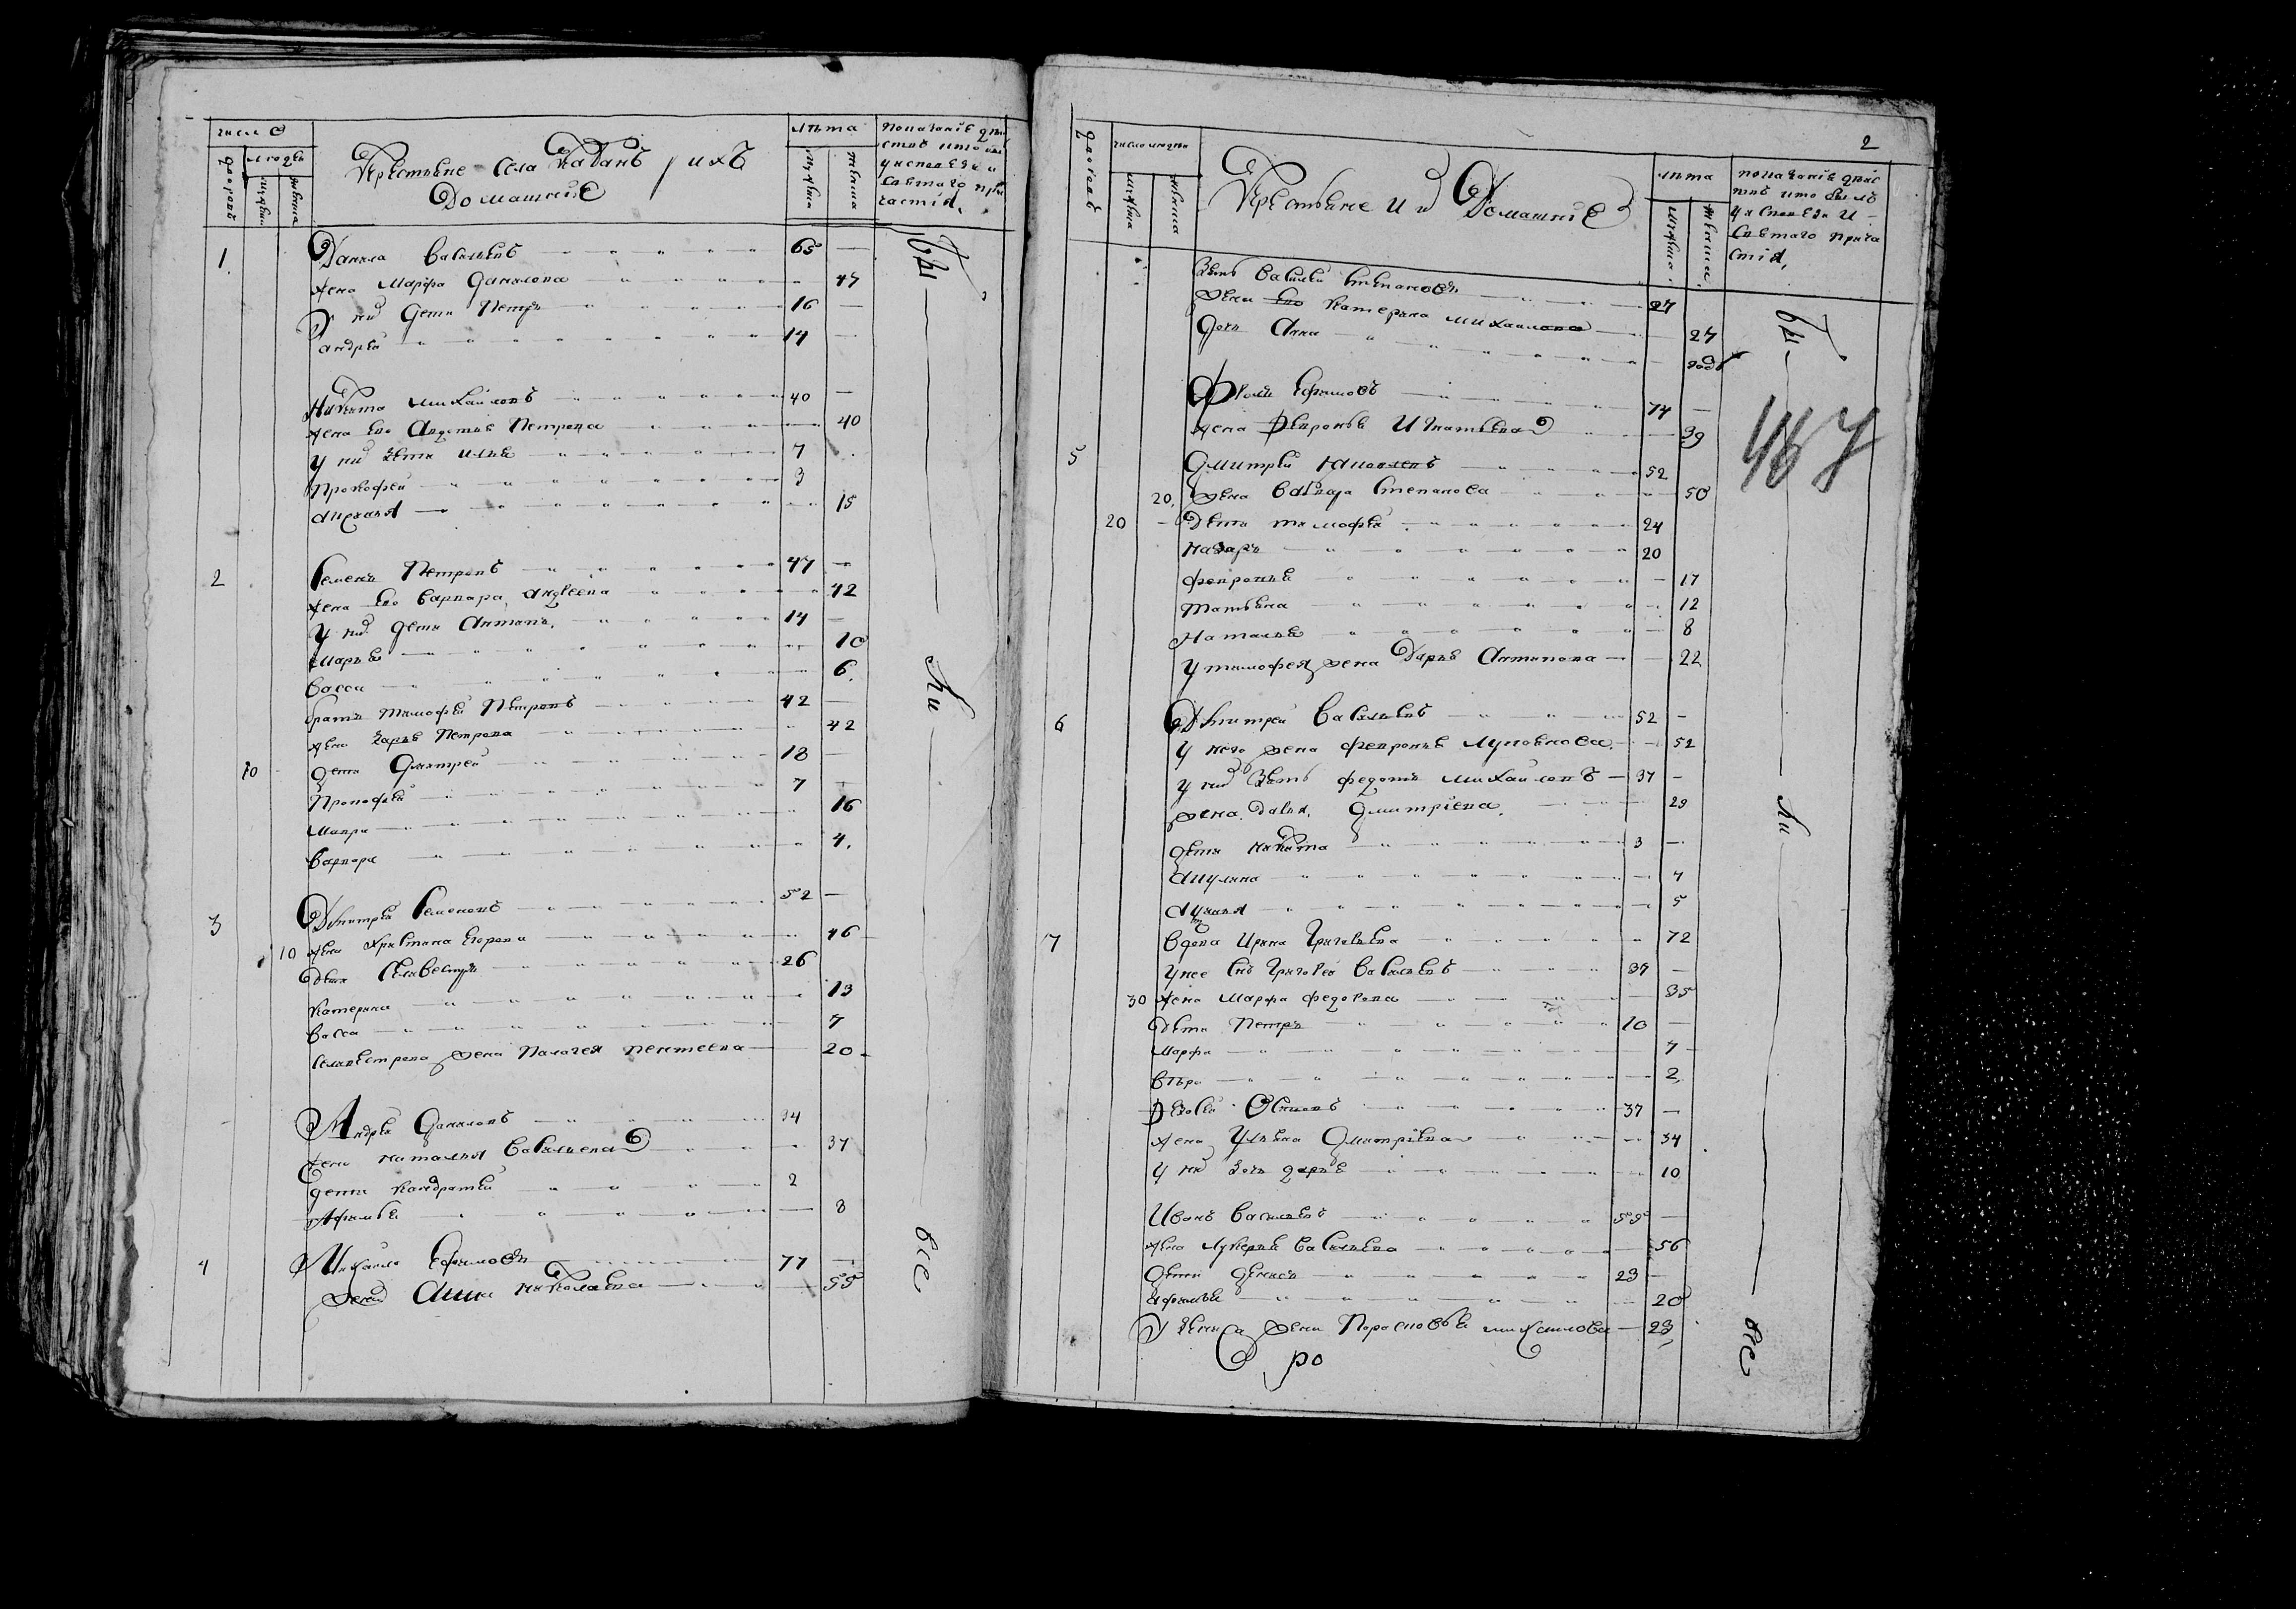 число
людей
дворовъ
мужеска
женска
Крестьяне Села Кабанъ и ихъ
Домашние
лѣта
мужеска
женска
показание дѣй
ствъ кто былъ
у исповеди и
Святаго при
частія
1 Данила Васильевъ 65
жена Марфа Данилова 47
у них дети Петръ 16
Андрей 14
Никита Михаиловъ 40
жена его Авдотья Петрова 40
у них дети Илья 7
Прокофей 3
15
2 Семенъ Петровъ 47
жена его Варвара Андреева 42
у них дети Антонъ 14
Марья 10
Васса 6
братъ Тимофей Петровъ 42
жена Дарья Петрова 42
10 дети Дмитрей 18
Прокофей 7
Мавра 16
Варвара 4
3 Дмитрей Семеновъ 52
10 жена Христина Егорова 46
дети Селивестръ 26
Катерина 13
Васса 7
Селивестрова жена Палагея 20
Андрей Даниловъ 34
жена Наталья Васильева 37
дети Кондратей 2
Афимья 8
4 Михаило Ефимовъ 77
жена Анна Николаева 55
бы
ли
все
2
дворовъ
число людей
мужеска
женска
Крестьяне и их Домашние
лѣта
мужеска
женска
показание дѣйс
твъ кто былъ
у исповеди и
Святаго прича
стія
зять Василей Степановъ 27
жена его Катерина Михаилова 27
дочь Анна год
Фролъ Ефимовъ 74
жена Февронья Игнатьева 39
5 Дмитрей Яковлевъ 52
20 жена Варвара Степанова 50
20 дети Тимофей 24
Назаръ 20
Февронья 17
Татьяна 12
Наталья 8
у Тимофея жена Дарья Антипова 22
6 Дмитрей Васильевъ 52
у него жена Февронья 52
у них зять Федотъ Михаиловъ 37
жена Дарья Дмитріева 29
дети Никита 3
Акулина 7
5
7 Вдова Ирина Григорьева 72
у нее снъ Григорей Васильевъ 37
30 жена Марфа Федорова 35
дети Петръ 10
Марфа 7
Вѣра 2
Осиповъ 37
жена Ульяна Дмитріева 34
у них дочь Дарья 10
Иванъ Васильевъ 59
жена Лукерья Васильева 56
дети Денисъ 23
Афимья 20
у Дениса жена Парасковья Михаилова 23
ро
бы
467
ли
все